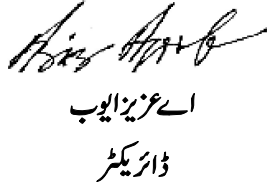 اے عزیز ایوب
ڈائریکٹر